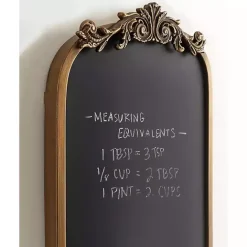 - MEASURING
EQUIVALENTS -
1 TBSP = 3 TSP
1/8 CUP = 2 TBSP
1 PINT = 2 CUPS